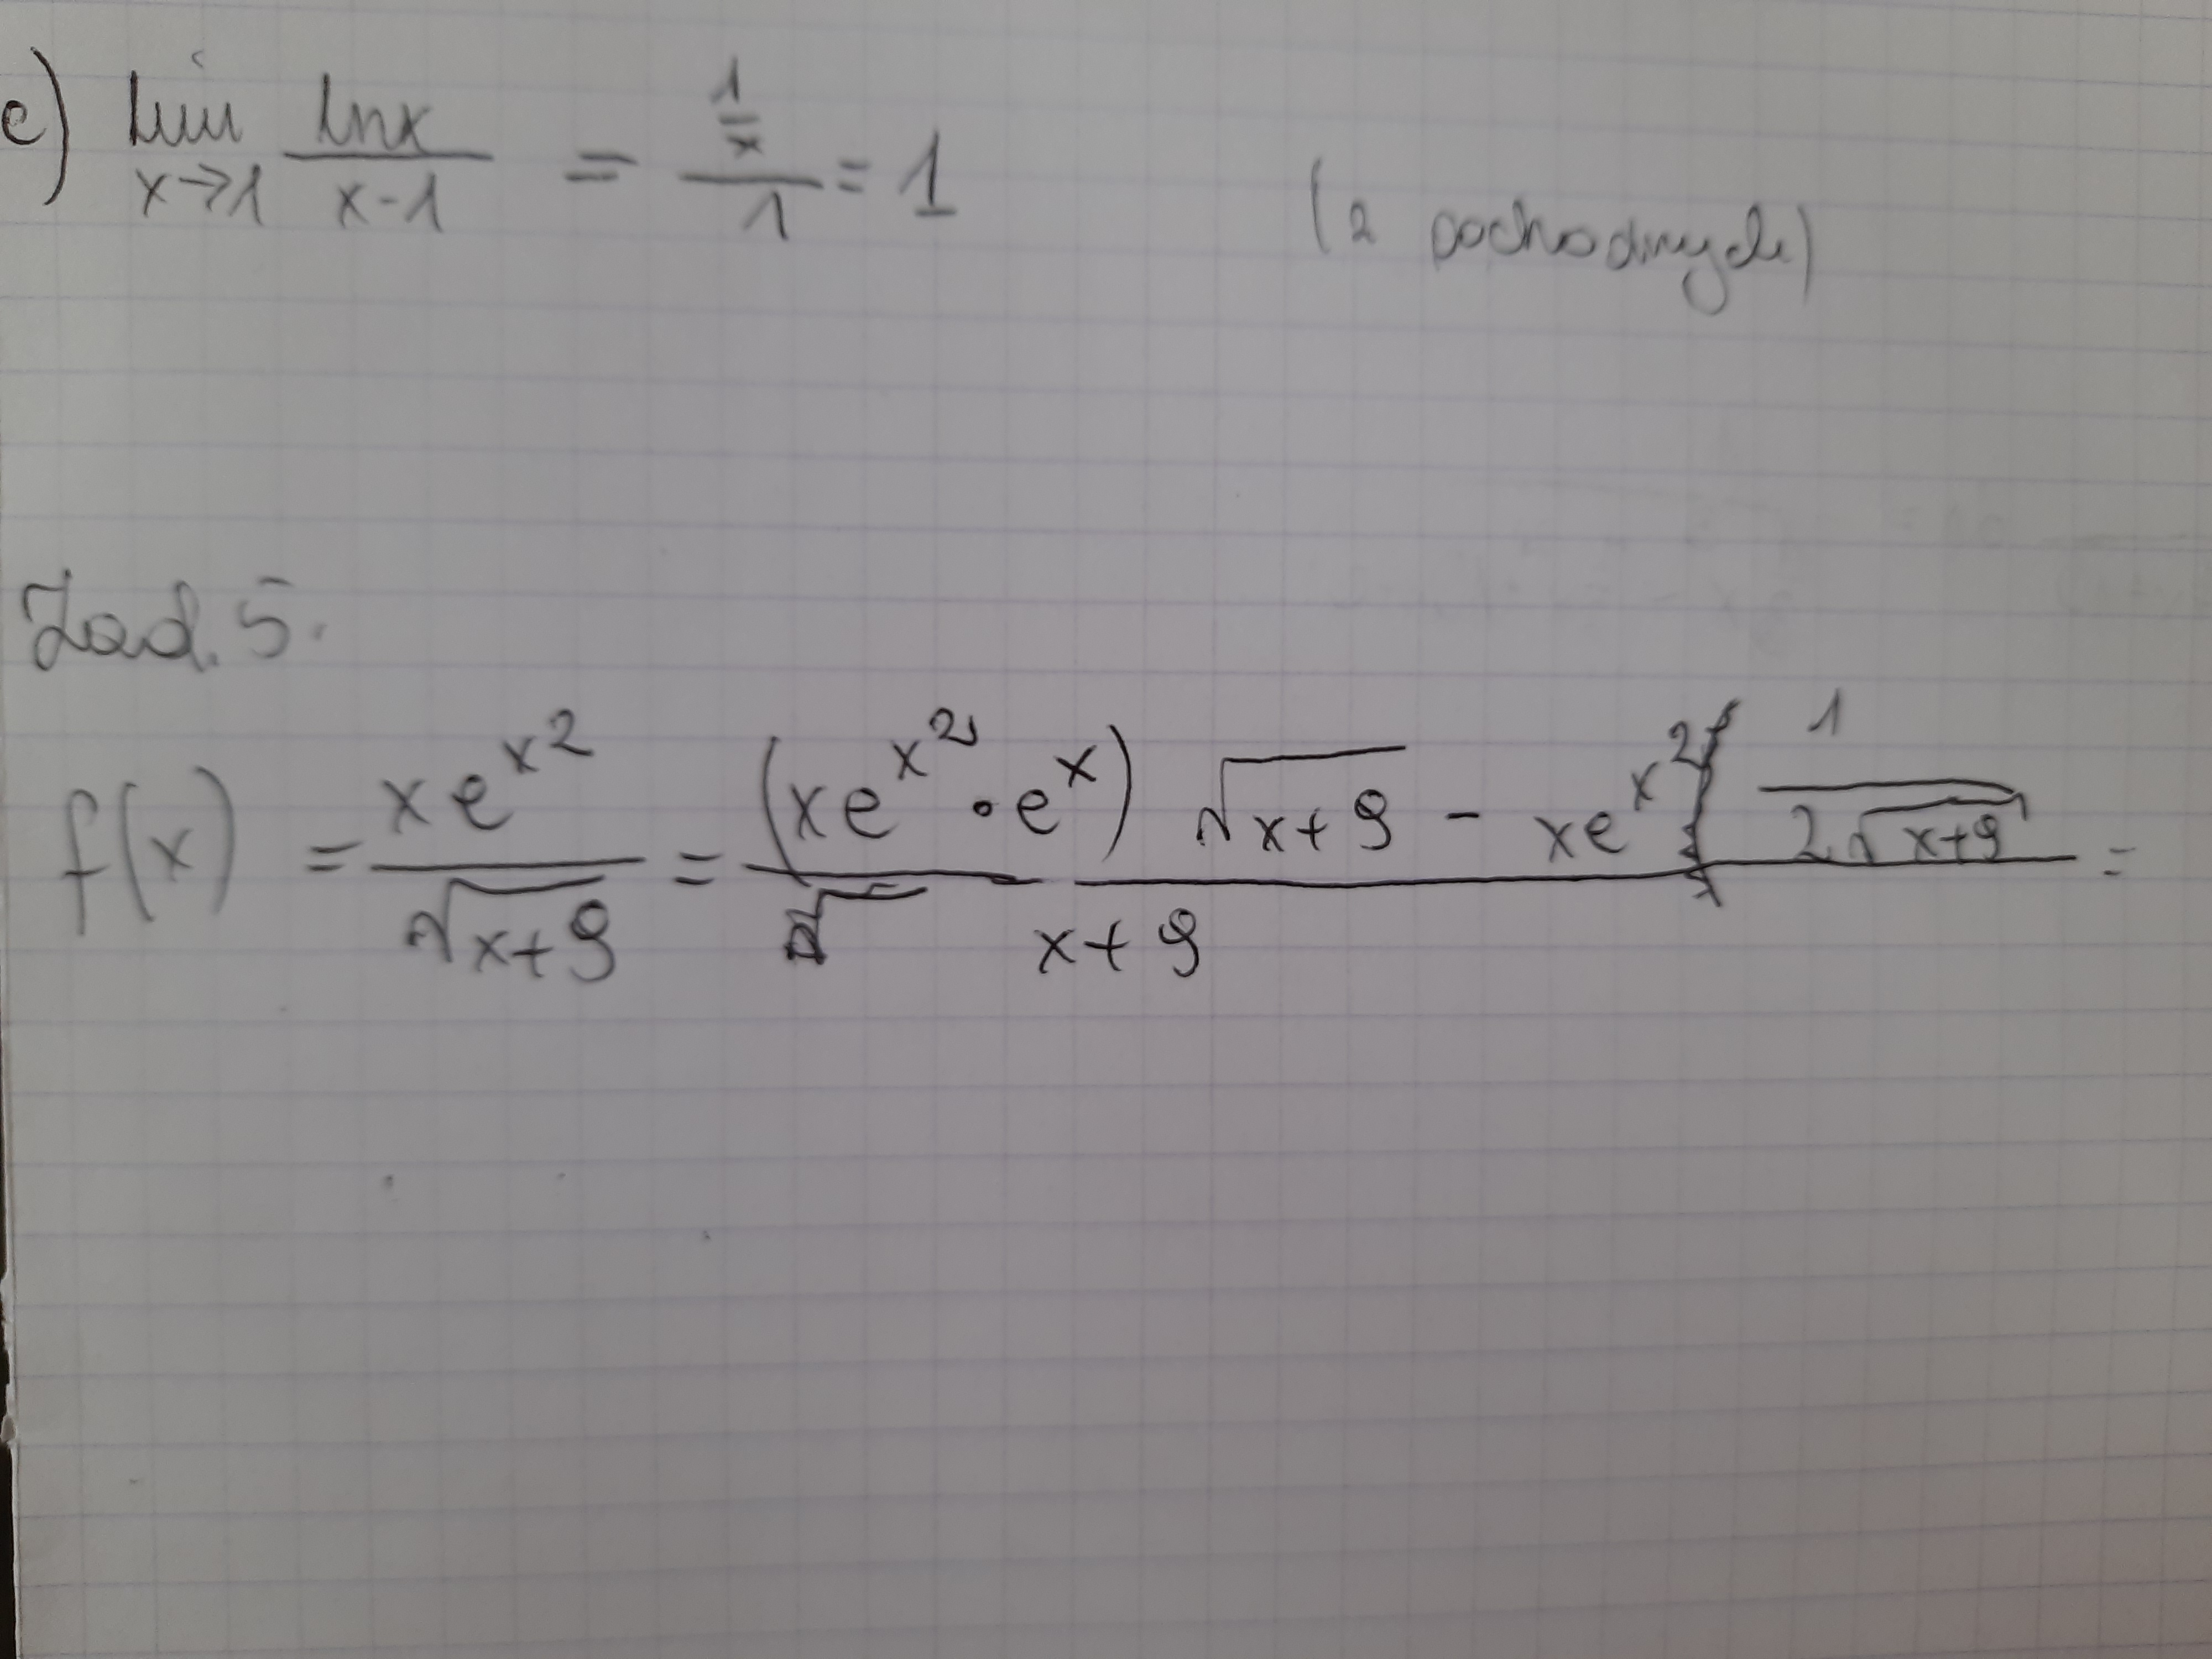 e) lim x→1 lnx / x-1 = 1/x / 1 = 1 (z pochodnych)
Zad. 5.
f(x) = x e^x^2 / √x+9 = (xe^x^2 · e^x) √x+9 - xe^x^2 1 / 2√x+9 / x+9 =